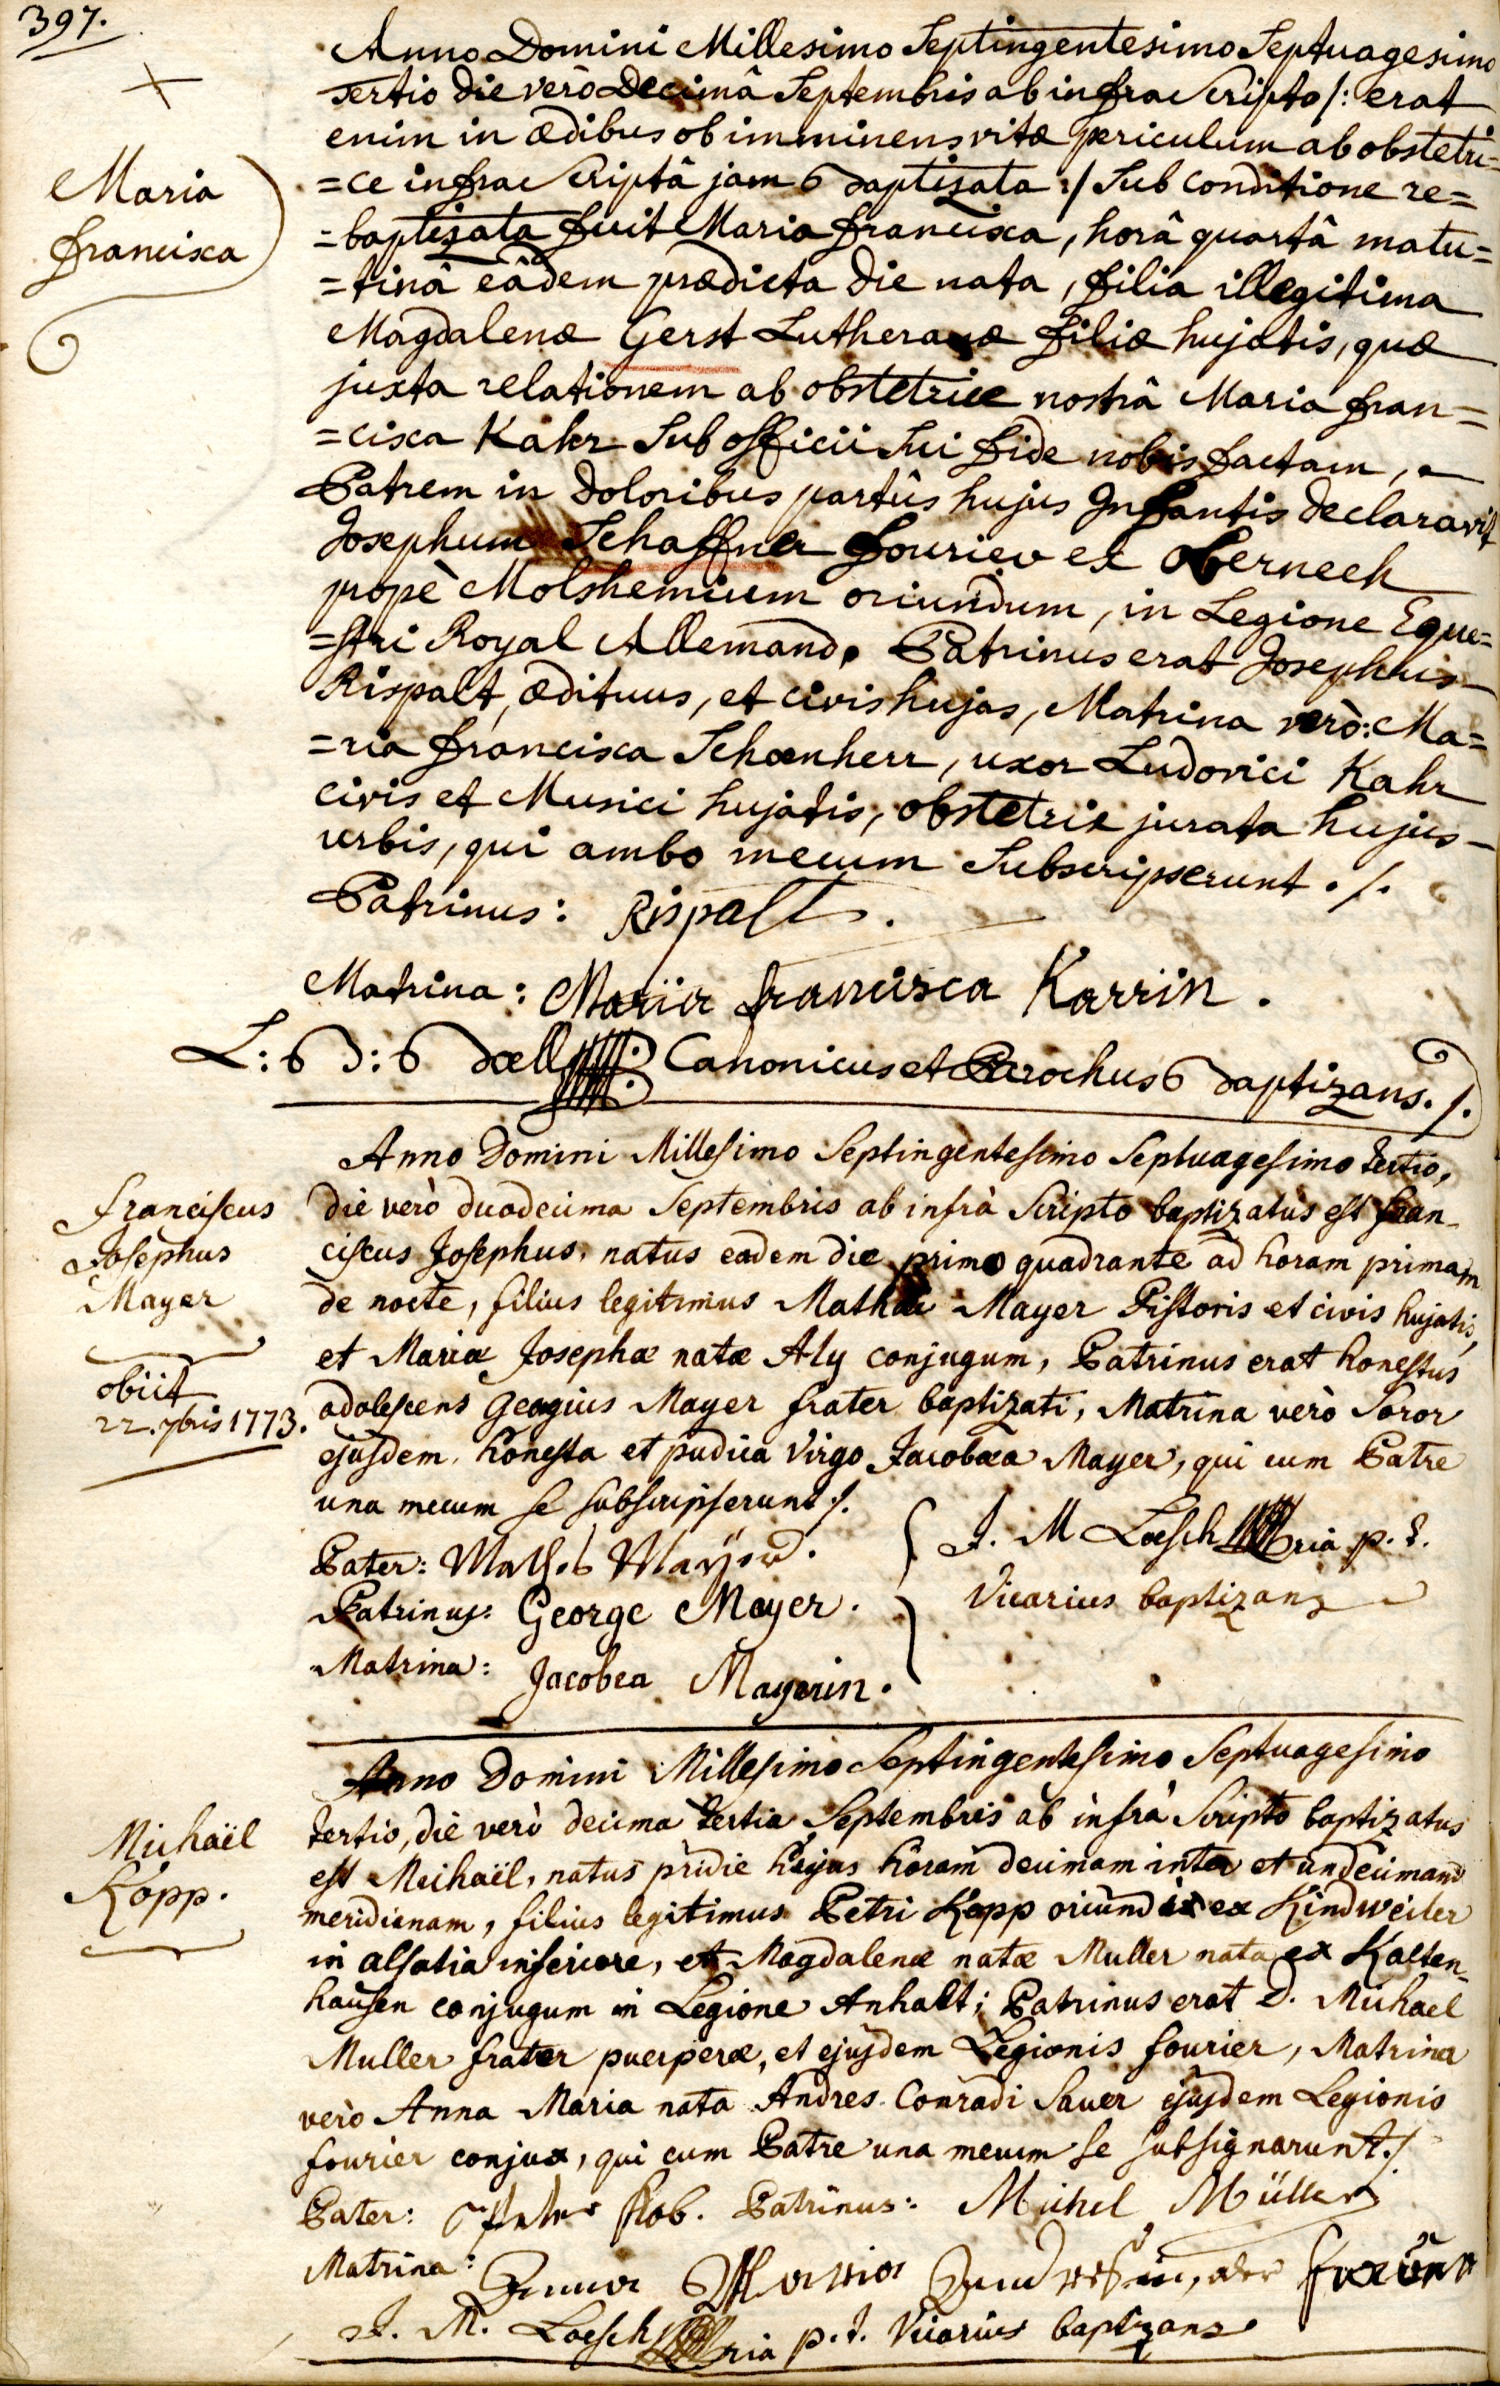 397.
Maria
francisca
Anno Domini Millesimo Septingentesimo Septuagesimo
tertio die verò Decimâ Septembris ab infra scripto /: erat
enim in ædibus ob imminens vitæ periculum ab obstetri=
=ce infra scriptâ jam baptizata :/ Sub conditione re=
=baptizata fuit Maria francisca, horâ quartâ matu=
=tinâ eâdem prædicta die nata, filia illegitima
Magdalenæ Gerst Lutheranæ filiæ hujatis, quæ
juxta relationem ab obstetrice nostrâ Maria fran=
=cisca Kahr Sub officii sui fide nobis factam,
Patrem in doloribus partûs hujus Infantis declaravit
Josephum Schaffner fourier ex Oberneck
propè Molshemium oriundum, in Legione Eque=
=stri Royal Allemand. Patrinus erat Josephus
Rispalt, ædituus, et civis hujas, Matrina verò: Ma=
=ria francisca Schœnherr, uxor Ludovici Kahr
civis et Musici hujatis, obstetrix jurata hujus
urbis, qui ambo mecum Subscripserunt ./.
Patrinus: Rispalt.
Matrina: Maria francisca Karrin.
L: B J: B Canonicus et Parochus baptizans ./.
franciscus
Josephus
Mayer
obiit
22. 7bris 1773.
Anno Domini Millesimo Septingentesimo Septuagesimo tertio,
die verò duodecima Septembris ab infrà Scripto baptizatus est fran-
ciscus Josephus, natus eadem die primo quadrante ad horam primam
de nocte, filius legitimus Mathæi Mayer Pistoris et civis hujatis,
et Mariæ Josephæ natæ Aly conjugum, Patrinus erat honestus
adolescens Georgius Mayer frater baptizati, Matrina verò Soror
ejusdem honesta et pudica Virgo Jacobæa Mayer, qui cum Patre
una mecum se subscripserunt ./.
Pater: Mathes Mayer.
Patrinus: George Mayer.
Matrina: Jacobea Mayerin.
J. M Loesch p. t.
Vicarius baptizans
Michaël
Kopp.
Anno Domini Millesimo Septingentesimo Septuagesimo
tertio, die verò decima tertia Septembris ab infrà Scripto baptizatus
est Michaël, natus pridie hujus horam decimam inter et undecimam
meridianam, filius legitimus Petri Kopp oriundi ex Kindweiler
in alsatia inferiore, et Magdalenæ natæ Muller nata ex Kalten-
hausen conjugum in Legione Anhalt; Patrinus erat D. Michael
Muller frater puerperæ, et ejusdem Legionis fourier, Matrina
verò Anna Maria nata Andres Conradi Sauer ejusdem Legionis
fourier conjux, qui cum Patre una mecum se subsignarunt ./.
Pater: Patrinus: Michel Müller
Matrina: Anna Maria
J. M. Loesch p. t. Vicarius baptizans